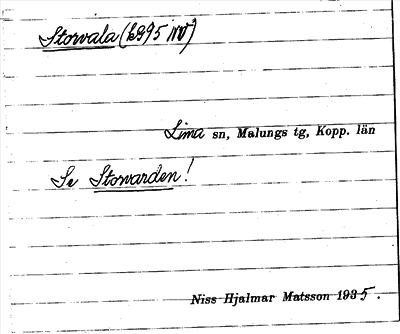 Storvala (6995 NV)
Lima sn, Malungs tg, Kopp. län
Se Storvarden!
Niss Hjalmar Matsson 1935.